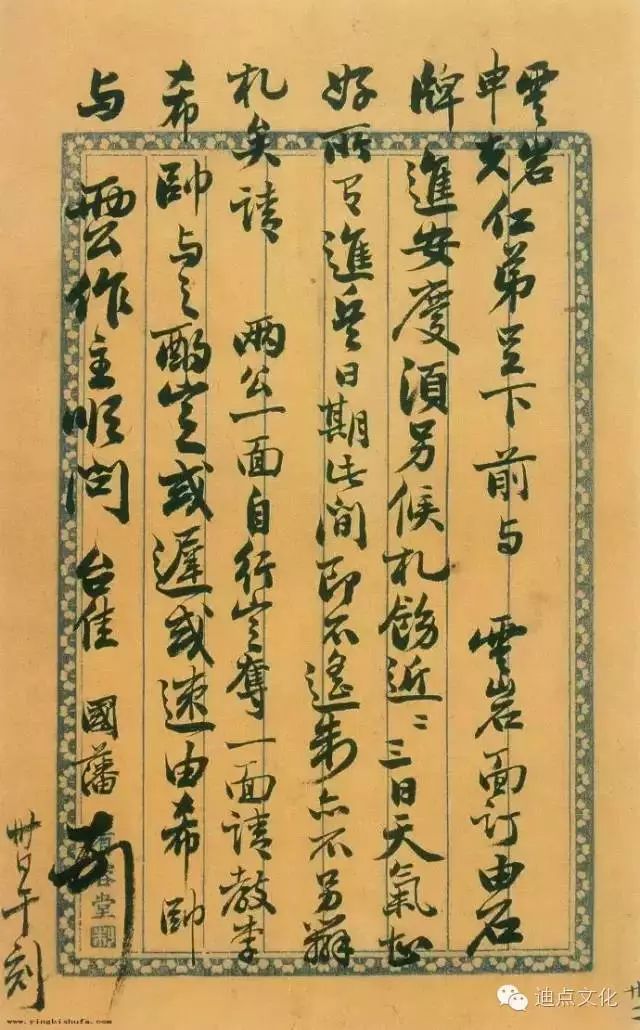 雲岩
申夫仁弟足下前与 雲岩面订由石
牌進安慶須另候札飭近二三日天氣甚
好所有進兵日期此间即不遙制亦不另辦
札矣請 兩公一面自行定奪一面請教李
希帥与之酌定或遲或速由希帥
与 兩公作主順问 台佳 國藩
卅日午刻
www.yingbishufa.com
迪点文化